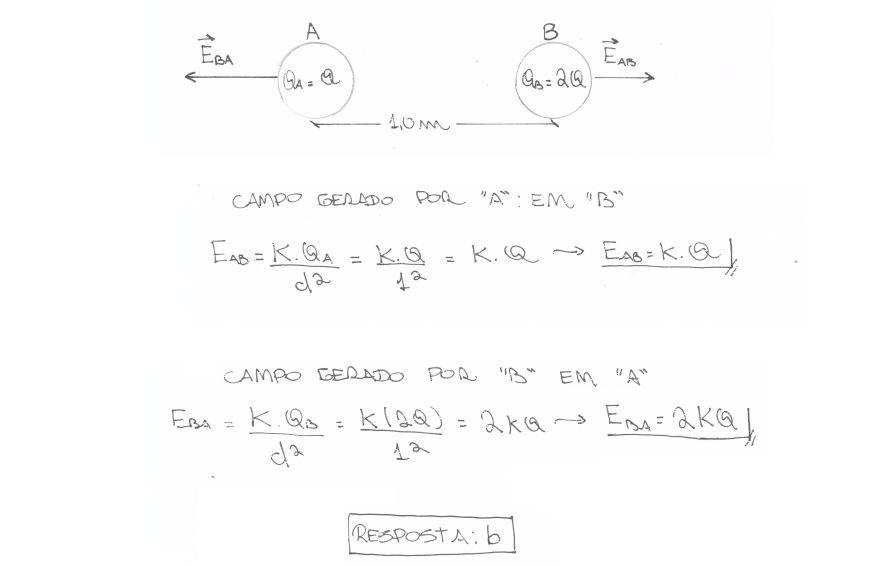 A B
E⃗BA E⃗AB
QA = Q QB = 2Q
1,0 m
CAMPO GERADO POR "A": EM "B"
EAB = K.QA/d² = K.Q/1² = K.Q → EAB = K.Q
CAMPO GERADO POR "B" EM "A"
EBA = K.QB/d² = K(2Q)/1² = 2KQ → EBA = 2KQ
RESPOSTA: b